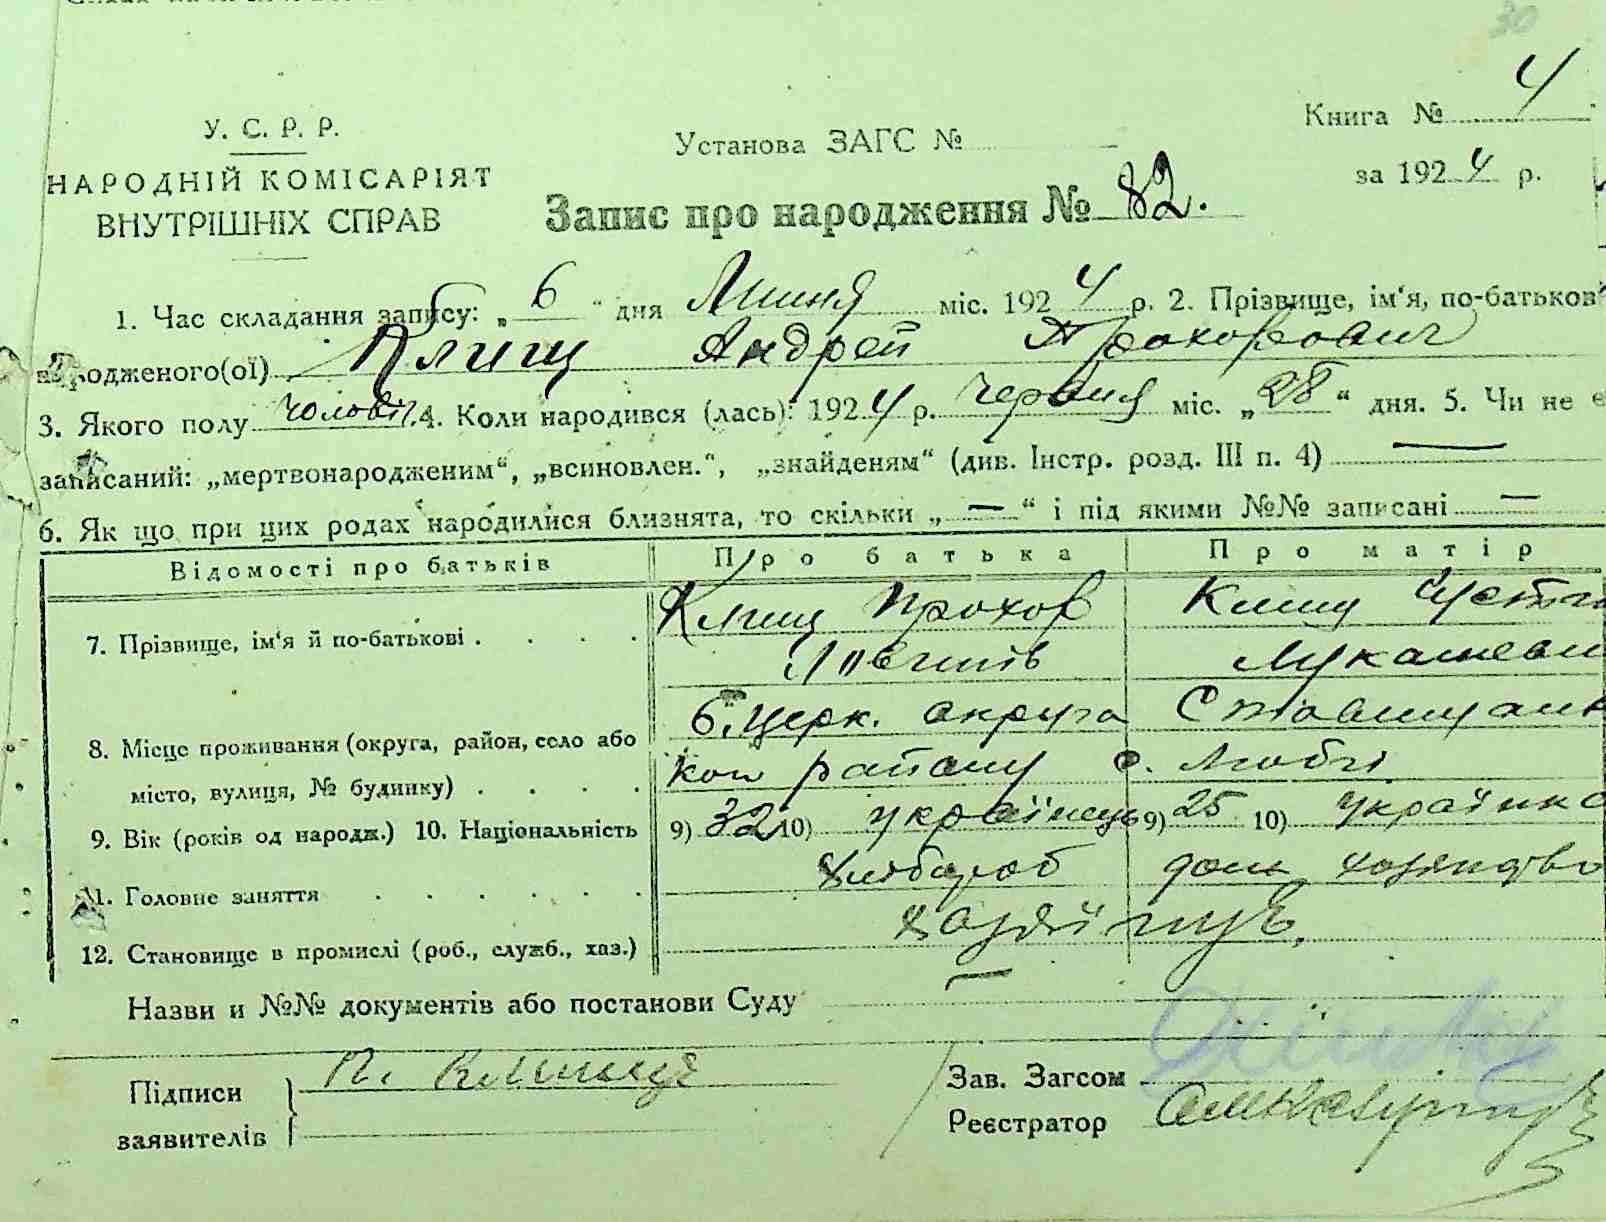 30
Книга № 4
У. С. Р. Р.
Установа ЗАГС №
за 1924 р.
НАРОДНІЙ КОМІСАРІЯТ
ВНУТРІШНІХ СПРАВ
Запис про народження № 82.
1. Час складання запису: „6“ дня Липня міс. 1924 р. 2. Прізвище, ім'я, по-батькові
народженого(ої) Клищ Андрей Прохорович
3. Якого полу чоловіч. 4. Коли народився (лась): 1924 р. червня міс. „28“ дня. 5. Чи не є
записаний: „мертвонародженим“, „всиновлен.“, „знайденям“ (див. Інстр. розд. III п. 4) —
6. Як що при цих родах народилися близнята, то скільки „—“ і під якими №№ записані —
Відомості про батьків
Про батька
Про матір
7. Прізвище, ім'я й по-батькові . . . .
Клищ Прохор
Клищ
8. Місце проживання (округа, район, село або
місто, вулиця, № будинку) . . . .
Б. Церк. округа Ставищан
ког району с.
9. Вік (років од народж.) 10. Національність
9) 32 10) українець 9) 25 10) українка
11. Головне заняття . . . . . .
хлібороб
дом. хозяйство
12. Становище в промислі (роб., служб., хаз.)
Назви и №№ документів або постанови Суду —
Підписи
заявителів
П.
Зав. Загсом
Реєстратор